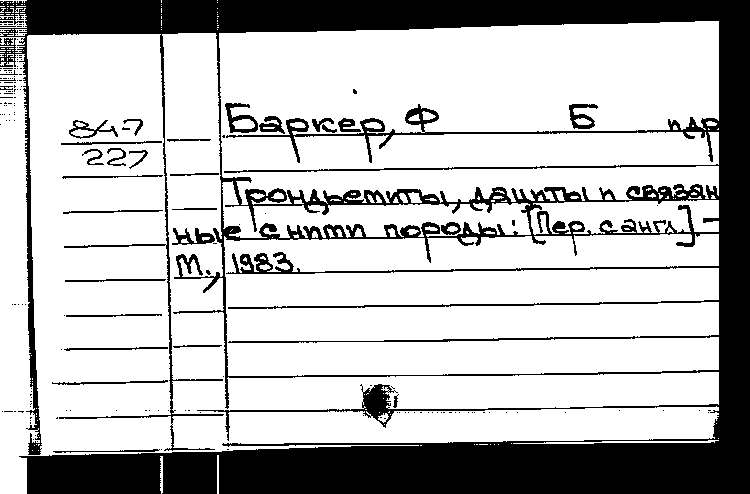 84-7
227
Баркер, Ф Б пдр
Трондьемиты, дациты и связан
ные с ними породы: [Пер. с англ.] –
М., 1983.